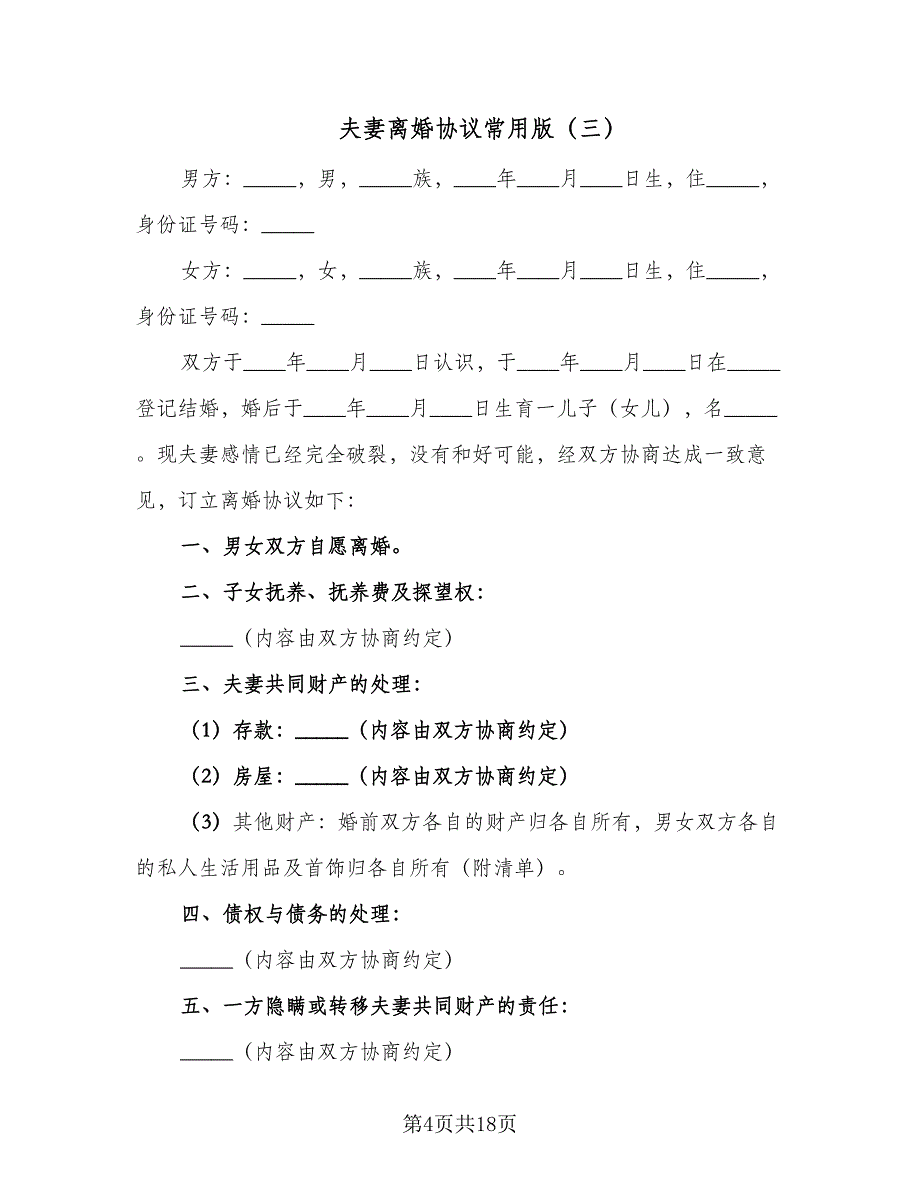 夫妻离婚协议常用版（三）
男方：_____，男，_____族，____年____月____日生，住_____，
身份证号码：_____
女方：_____，女，_____族，____年____月____日生，住_____，
身份证号码：_____
双方于____年____月____日认识，于____年____月____日在_____
登记结婚，婚后于____年____月____日生育一儿子（女儿），名_____
。现夫妻感情已经完全破裂，没有和好可能，经双方协商达成一致意
见，订立离婚协议如下：
一、男女双方自愿离婚。
二、子女抚养、抚养费及探望权：
_____（内容由双方协商约定）
三、夫妻共同财产的处理：
（1）存款：_____（内容由双方协商约定）
（2）房屋：_____（内容由双方协商约定）
（3）其他财产：婚前双方各自的财产归各自所有，男女双方各自
的私人生活用品及首饰归各自所有（附清单）。
四、债权与债务的处理：
_____（内容由双方协商约定）
五、一方隐瞒或转移夫妻共同财产的责任：
_____（内容由双方协商约定）
第4页共18页